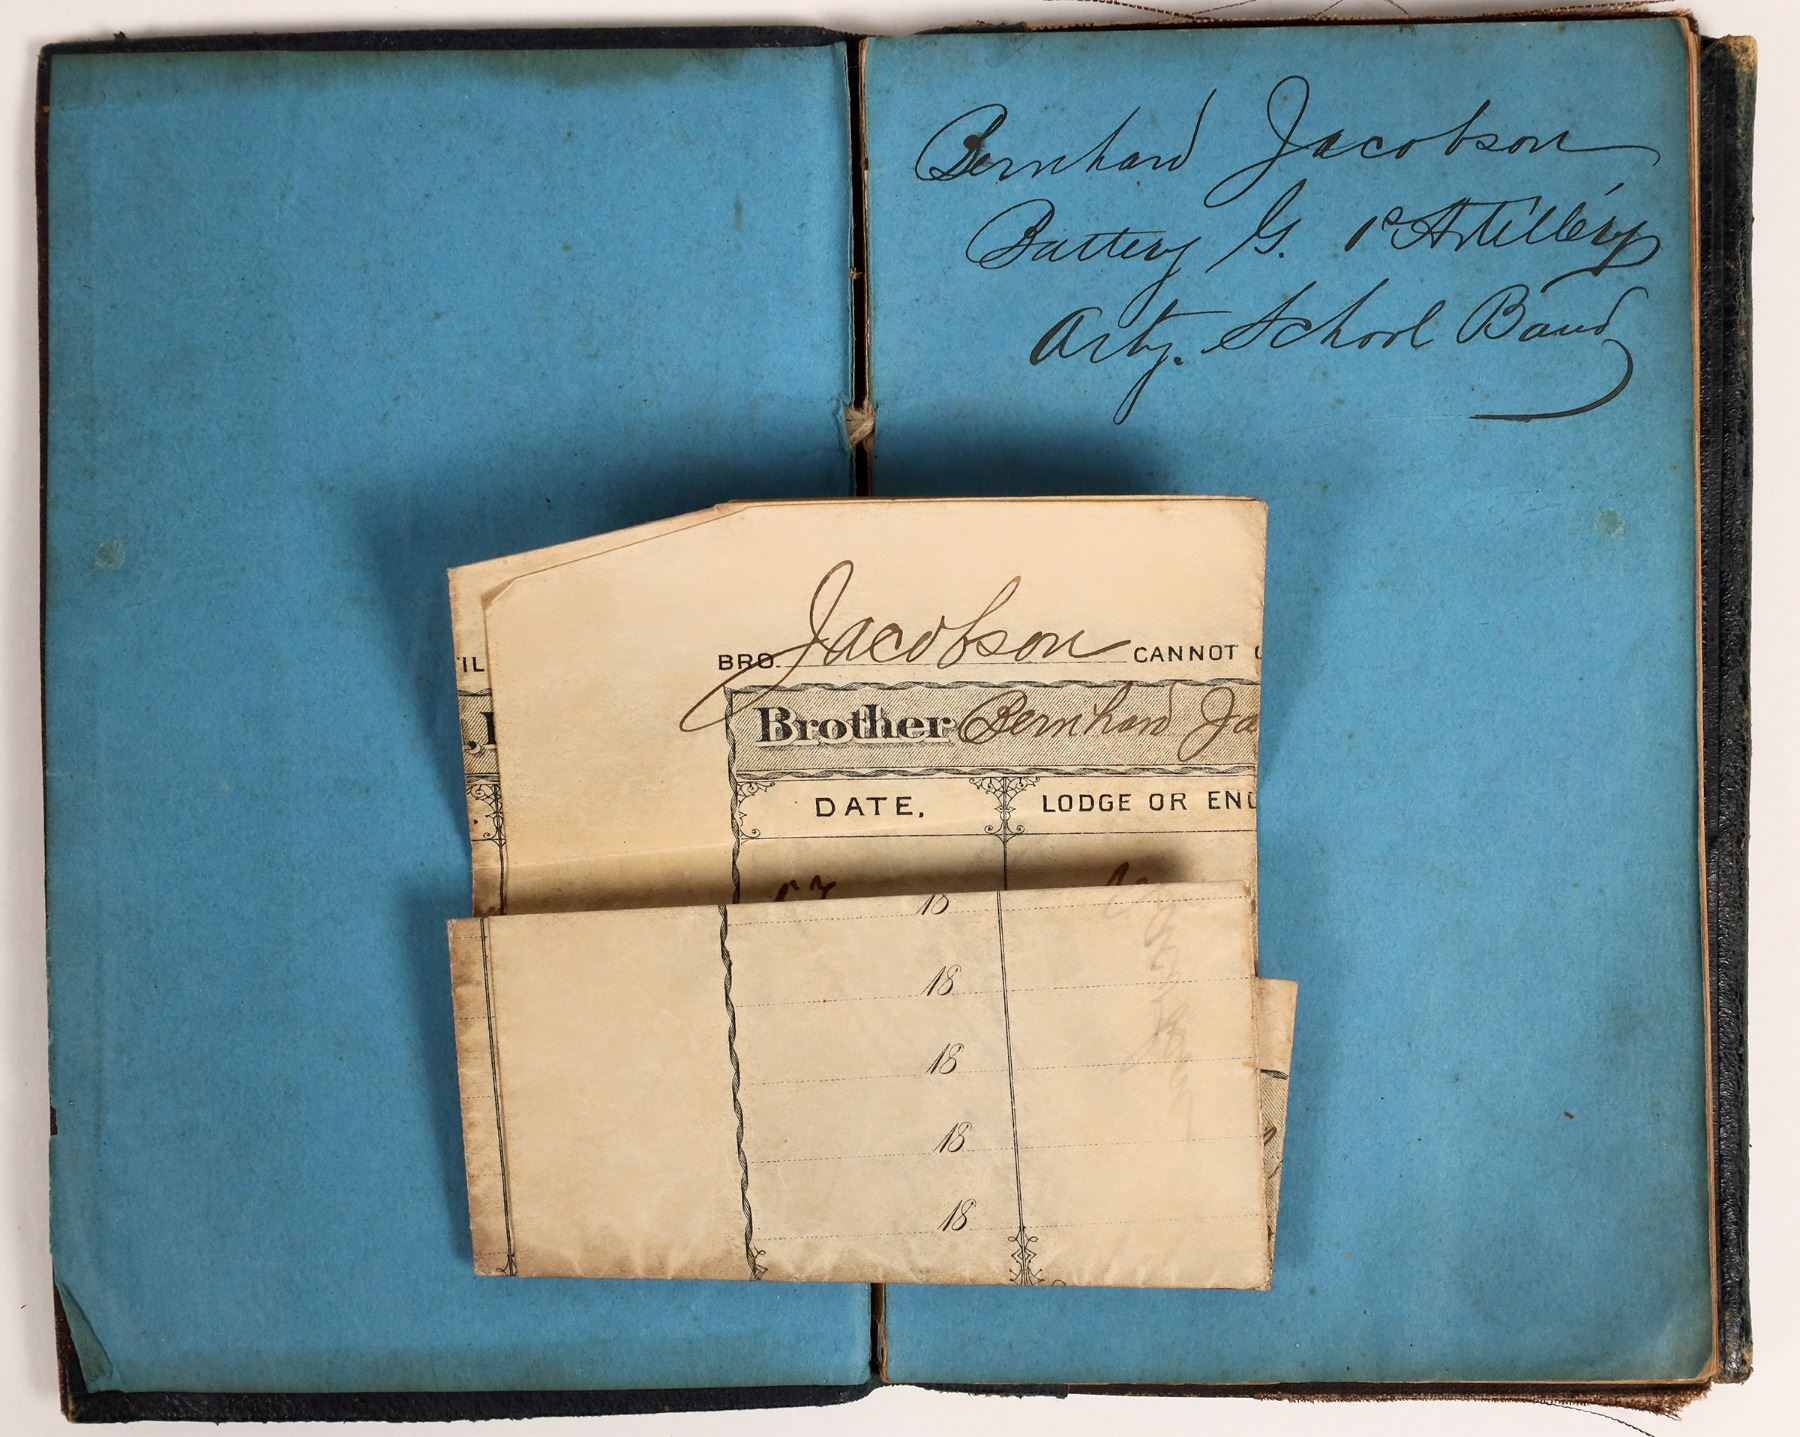 Bernhard Jacobson
Battery G. 1st Artillery
Arty. School Band
BRO. Jacobson CANNOT
Brother Bernhard Ja
DATE, LODGE OR EN
18
18
18
18
18